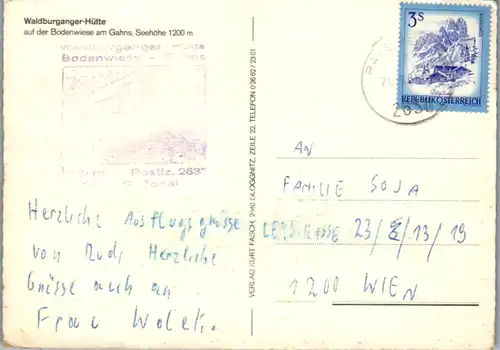 Waldburganger-Hütte
auf der Bodenwiese am Gahns, Seehöhe 1200 m
Waldburganger Hütte
Bodenwiese - Gahns
Postlz. 263
Herzliche Ausflugsgrüsse
von Rudi Herzliche
Grüsse auch an
Frau Wolek.
VERLAG KURT FASCH, 2640 GLOGGNITZ, ZEILE 22, TELEFON 0 26 62 / 23 01
3S
REPUBLIK ÖSTERREICH
AN
FAMILIE SOJA
23/2/13/19
1200 WIEN